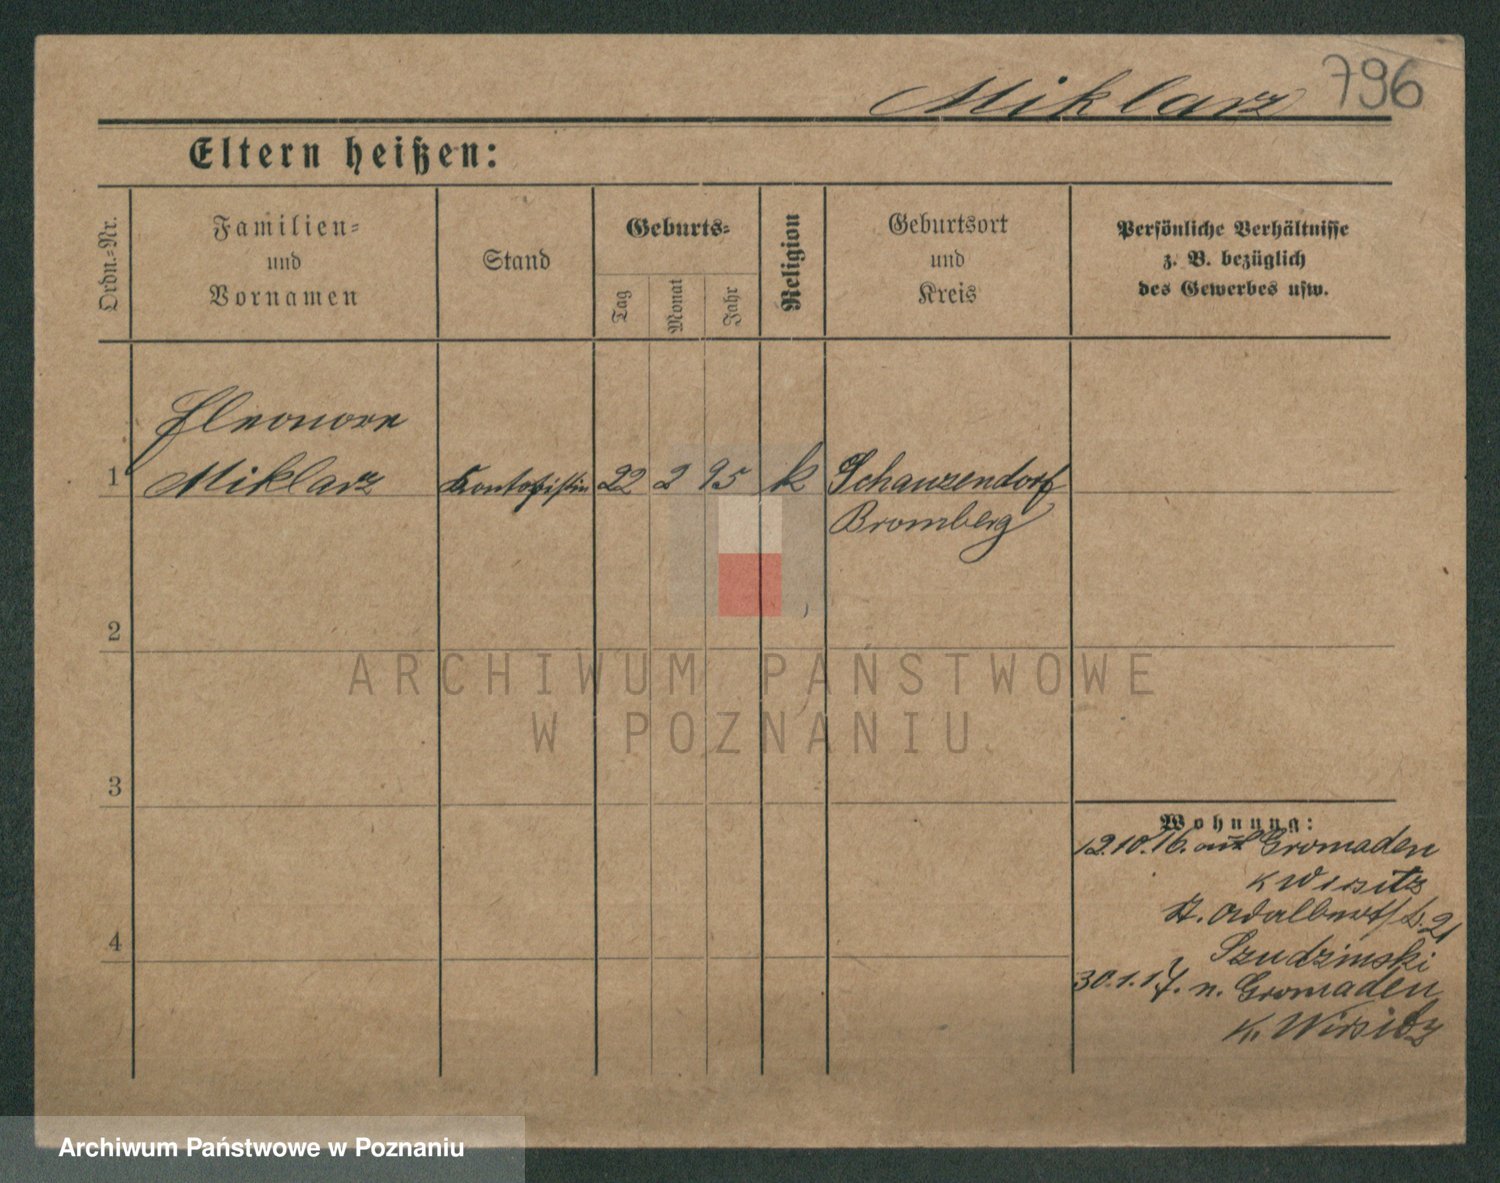 796
Miklarz
Eltern heißen:
Ordn.-Nr.
Familien-
und
Vornamen
Stand
Geburts-
Tag
Monat
Jahr
Religion
Geburtsort
und
Kreis
Persönliche Verhältnisse
z. B. bezüglich
des Gewerbes usw.
1
Eleonore
Miklarz
Kontoristin
22
2
95
k
Schanzendorf
Bromberg
2
3
4
Wohnung:
12.10.16. aus Gromaden
K Wirsitz
St. Adalbertstr. 21
Szudzinski
30.1.17. n. Gromaden
K. Wirsitz
ARCHIWUM PAŃSTWOWE
W POZNANIU
Archiwum Państwowe w Poznaniu